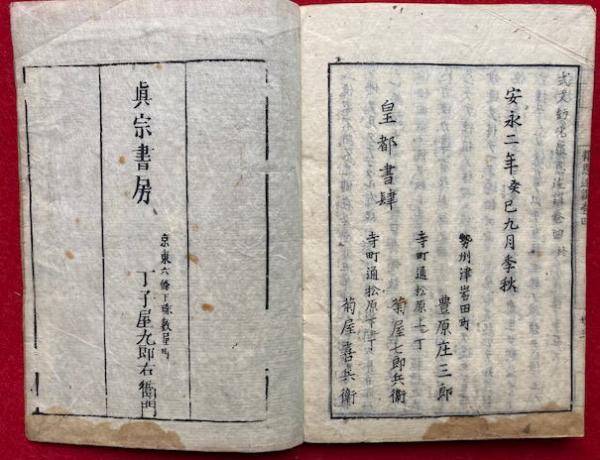 安永二年癸巳九月季秋
皇都書肆
勢州津岩田町
豊原庄三郎
寺町通松原上ル丁
菊屋七郎兵衛
寺町通松原下ル丁
菊屋喜兵衛
眞宗書房
京東六條下珠数屋町
丁子屋九郎右衛門